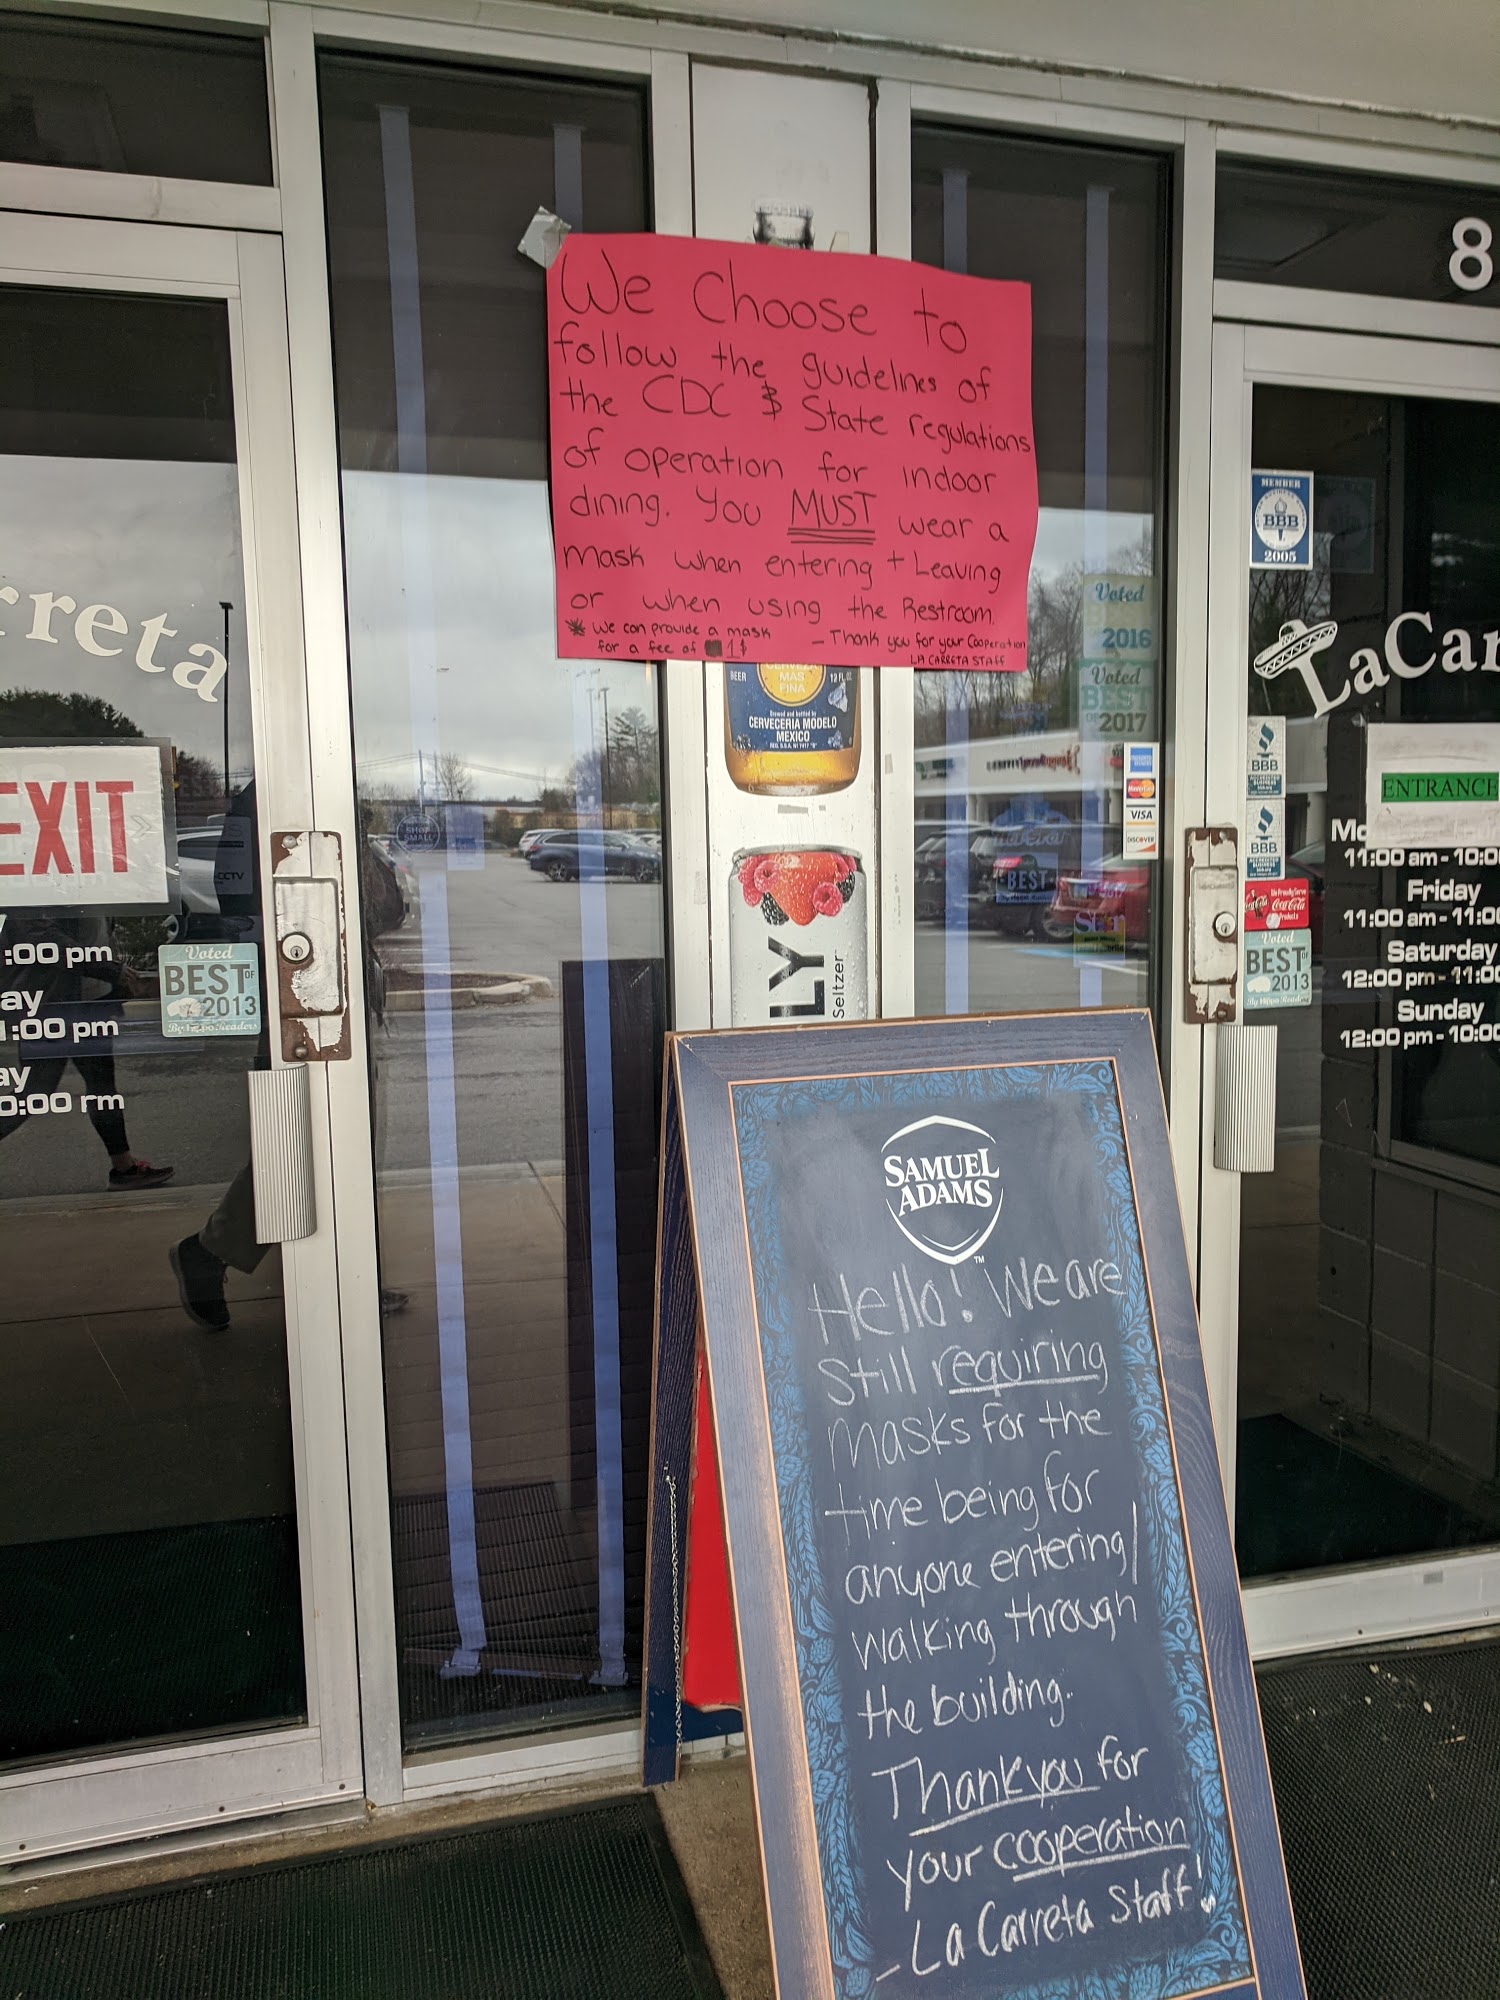 We Choose to
follow the guidelines of
the CDC $ State regulations
of operation for indoor
dining. You MUST wear a
mask when entering + Leaving
or when using the Restroom.
* We can provide a mask
for a fee of 1$
- Thank you for your Cooperation
LA CARRETA STAFF
BEER
CERVEZA
MAS
FINA
12 FL. OZ
Brewed and bottled by
CERVECERIA MODELO
MEXICO
LY
Seltzer
SAMUEL
ADAMS
TM
Hello! We are
Still requiring
Masks for the
time being for
anyone entering/
walking through
the building.
Thank you for
your cooperation
- La Carreta Staff!
rreta
EXIT
:00 pm
ay
1:00 pm
ay
0:00 pm
Voted
BEST OF
2013
By Hippo Readers
SHOP
SMALL
CCTV
Voted
2016
Voted
BEST
OF 2017
BEST
MasterCard
VISA
DISCOVER
8
MEMBER
BBB
2005
LaCar
BBB
BBB
We Proudly Serve
Coca-Cola
Products
Voted
BEST OF
2013
By Hippo Readers
ENTRANCE
Mo
11:00 am - 10:0
Friday
11:00 am - 11:0
Saturday
12:00 pm - 11:0
Sunday
12:00 pm - 10:0